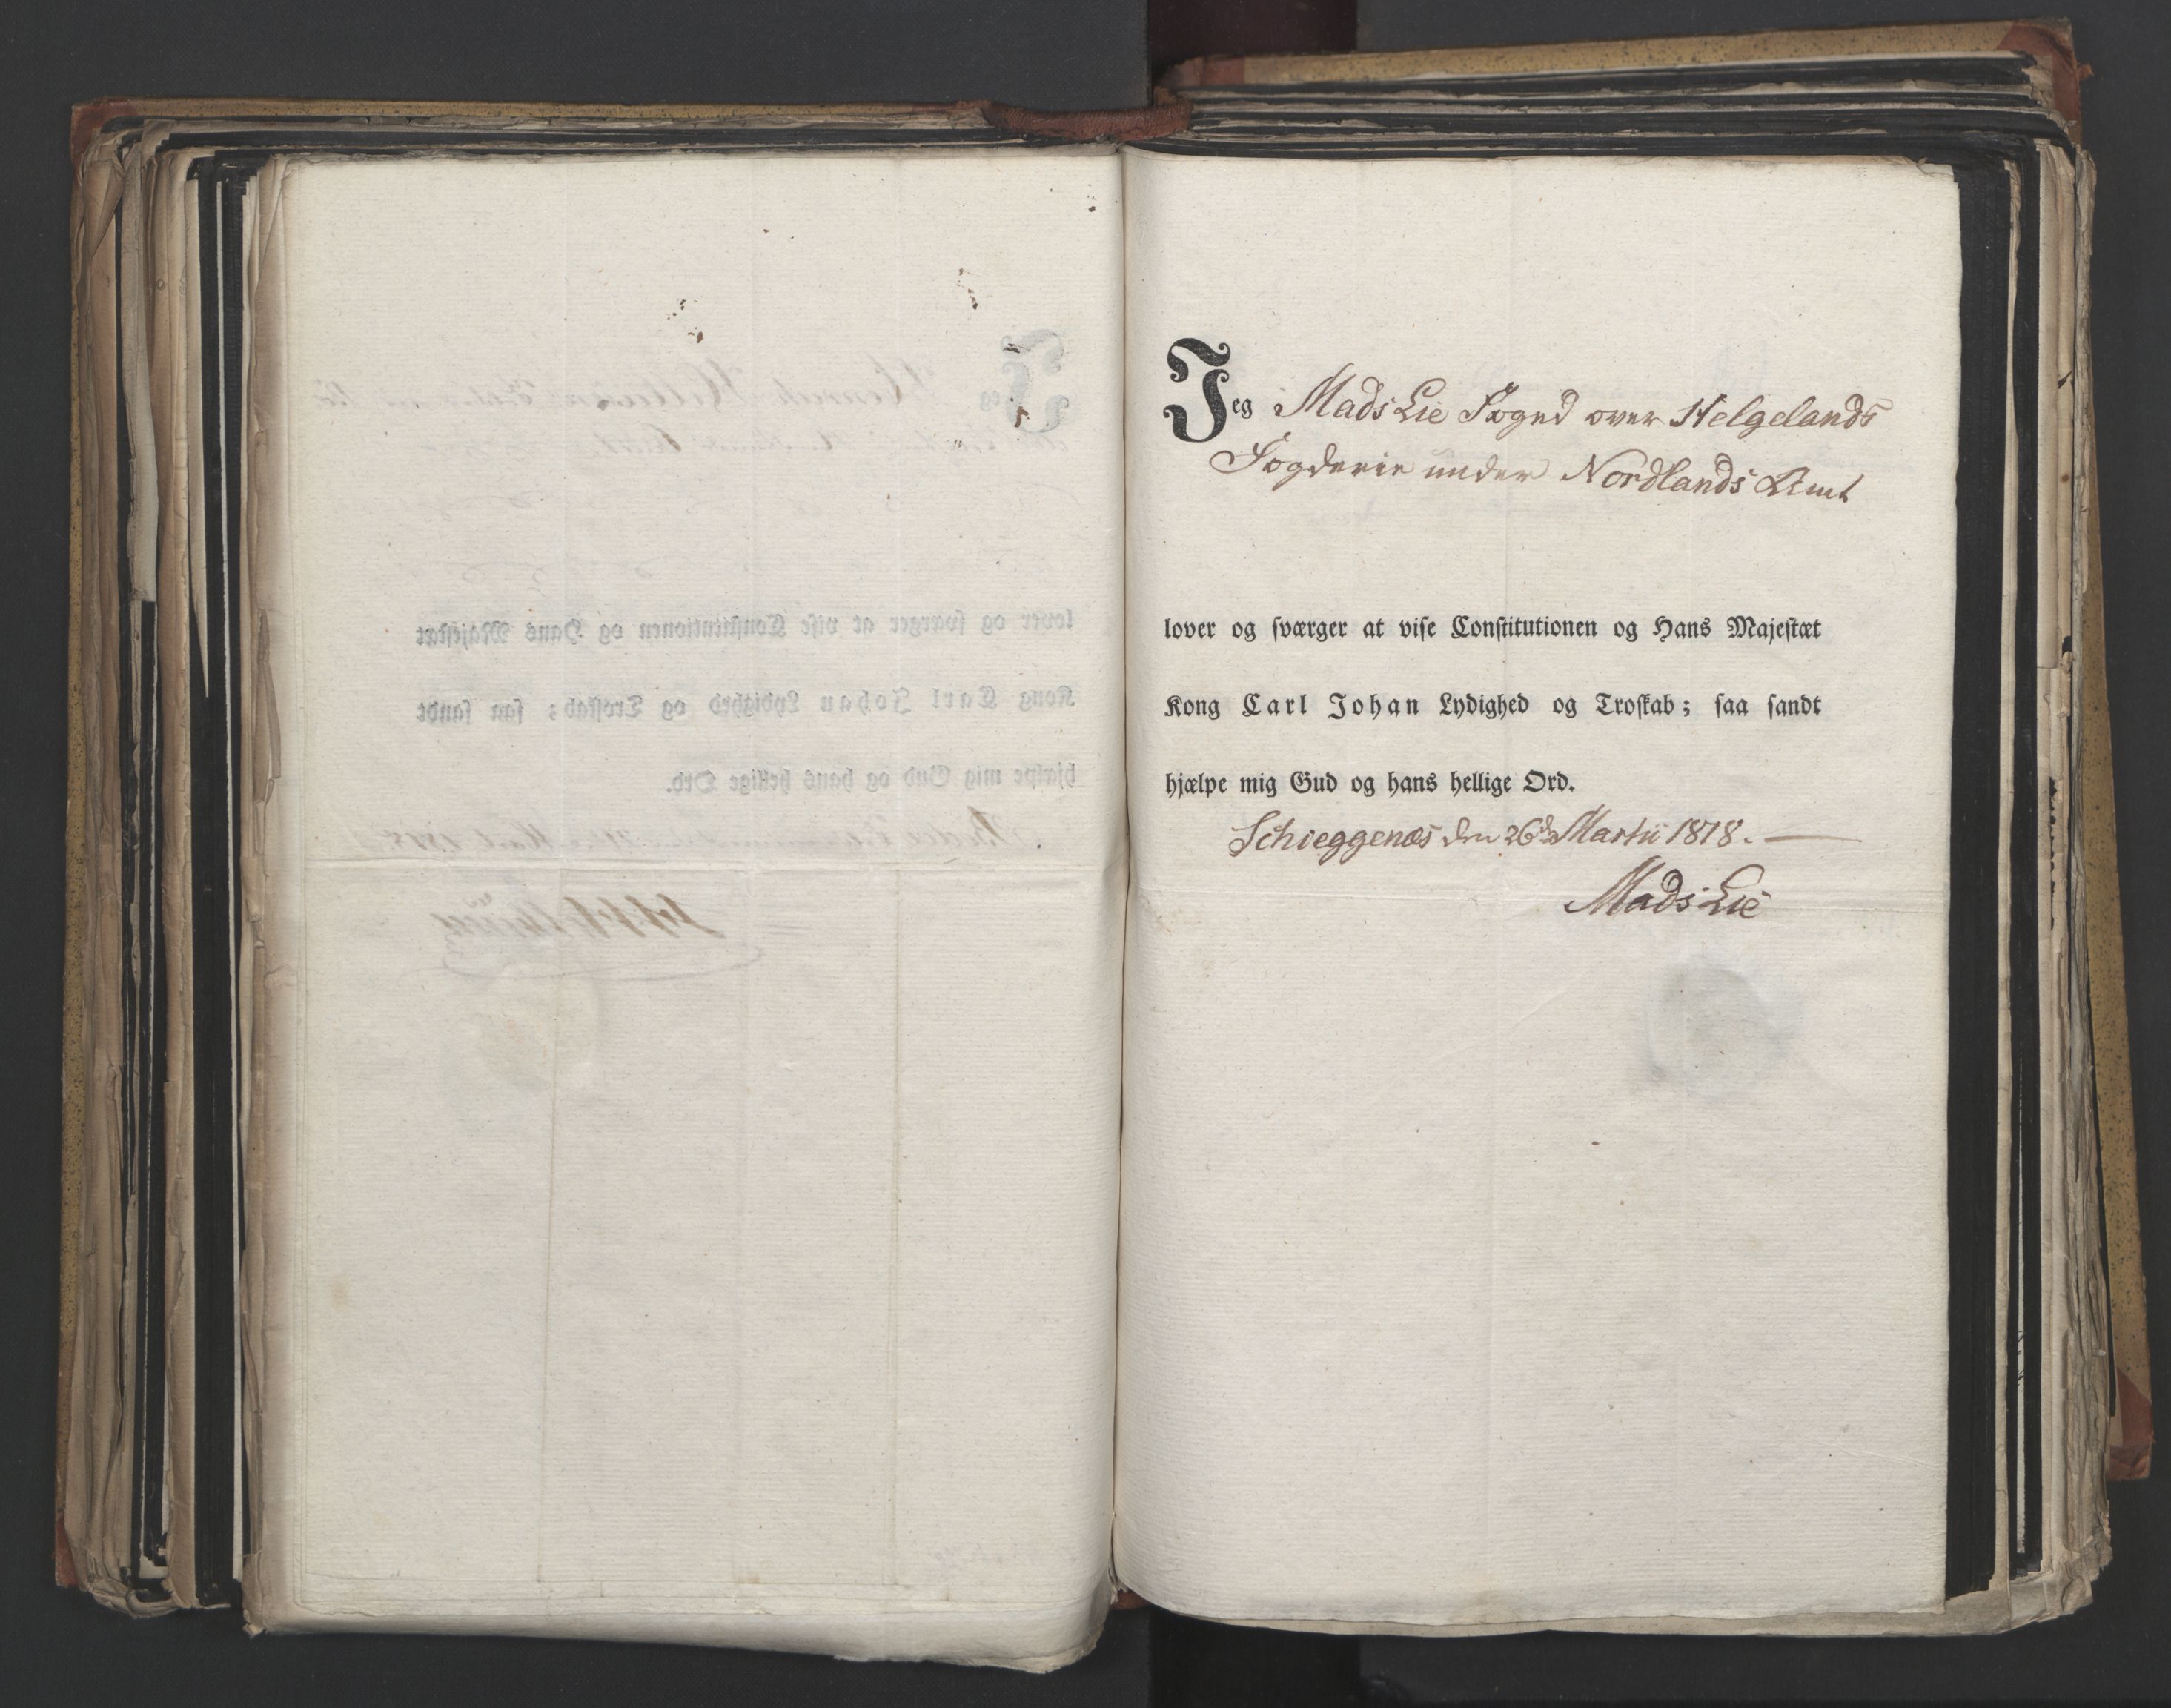 Jeg Mads Lie Foged over Helgelands
Fogderie under Nordlands Amt
lover og sværger at vise Constitutionen og Hans Majestæt
Kong Carl Johan Lydighed og Troskab; saa sandt
hjælpe mig Gud og hans hellige Ord.
Schieggenæs den 26de Martii 1818.
Mads Lie